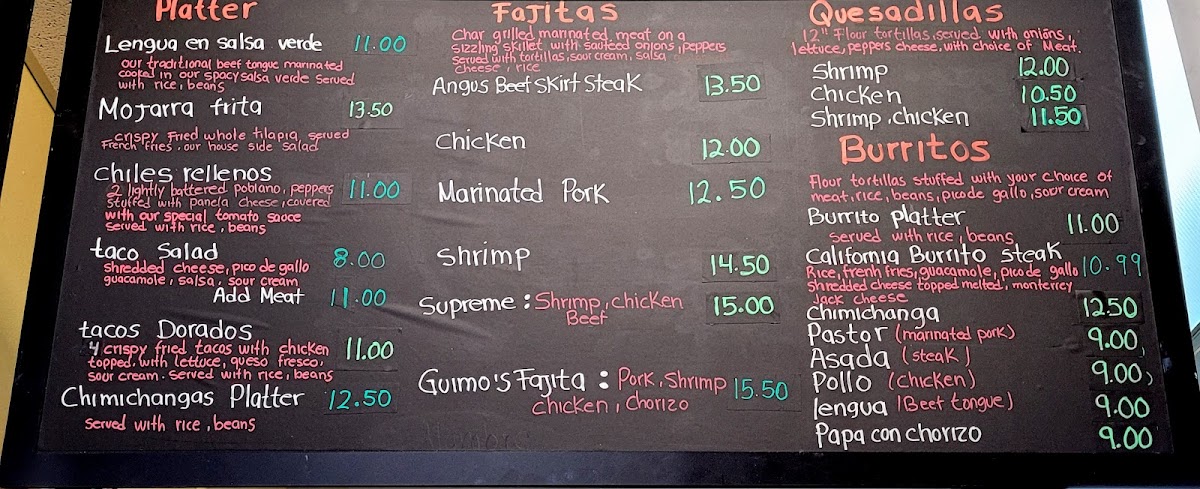 Platter
Lengua en salsa verde 11.00
our traditional beef tongue marinated
cooked in our spacy salsa verde served
with rice, beans
Mojarra frita 13.50
crispy Fried whole tilapia served
French fries. our house side salad
chiles rellenos
2 lightly battered poblano, peppers 11.00
stuffed with panela cheese, covered
with our special tomato sauce
served with rice, beans
taco Salad 8.00
shredded cheese, pico de gallo
guacamole, salsa, sour cream
Add Meat 11.00
tacos Dorados
4 crispy fried tacos with chicken 11.00
topped, with lettuce, queso fresco,
sour cream. served with rice, beans
Chimichangas Platter 12.50
served with rice, beans
Fajitas
Char grilled marinated meat on a
sizzling skillet with sauteed onions, peppers
served with tortillas, sour cream, salsa
cheese, rice
Angus Beef Skirt Steak 13.50
Chicken 12.00
Marinated Pork 12.50
Shrimp 14.50
Supreme: Shrimp, chicken 15.00
Beef
Guimo's Fajita: Pork, Shrimp 15.50
chicken, chorizo
Quesadillas
12" Flour tortillas, served with onions,
lettuce, peppers cheese, with choice of Meat.
Shrimp 12.00
Chicken 10.50
Shrimp, chicken 11.50
Burritos
Flour tortillas stuffed with your choice of
meat, rice, beans, pico de gallo, sour cream
Burrito platter 11.00
served with rice, beans
California Burrito steak
Rice, frenh fries, guacamole, pico de gallo 10.99
Shredded cheese topped melted, monterrey
Jack cheese
Chimichanga 12.50
Pastor (marinated pork) 9.00
Asada (steak)
Pollo (chicken) 9.00
lengua (Beef tongue) 9.00
Papa con chorizo 9.00